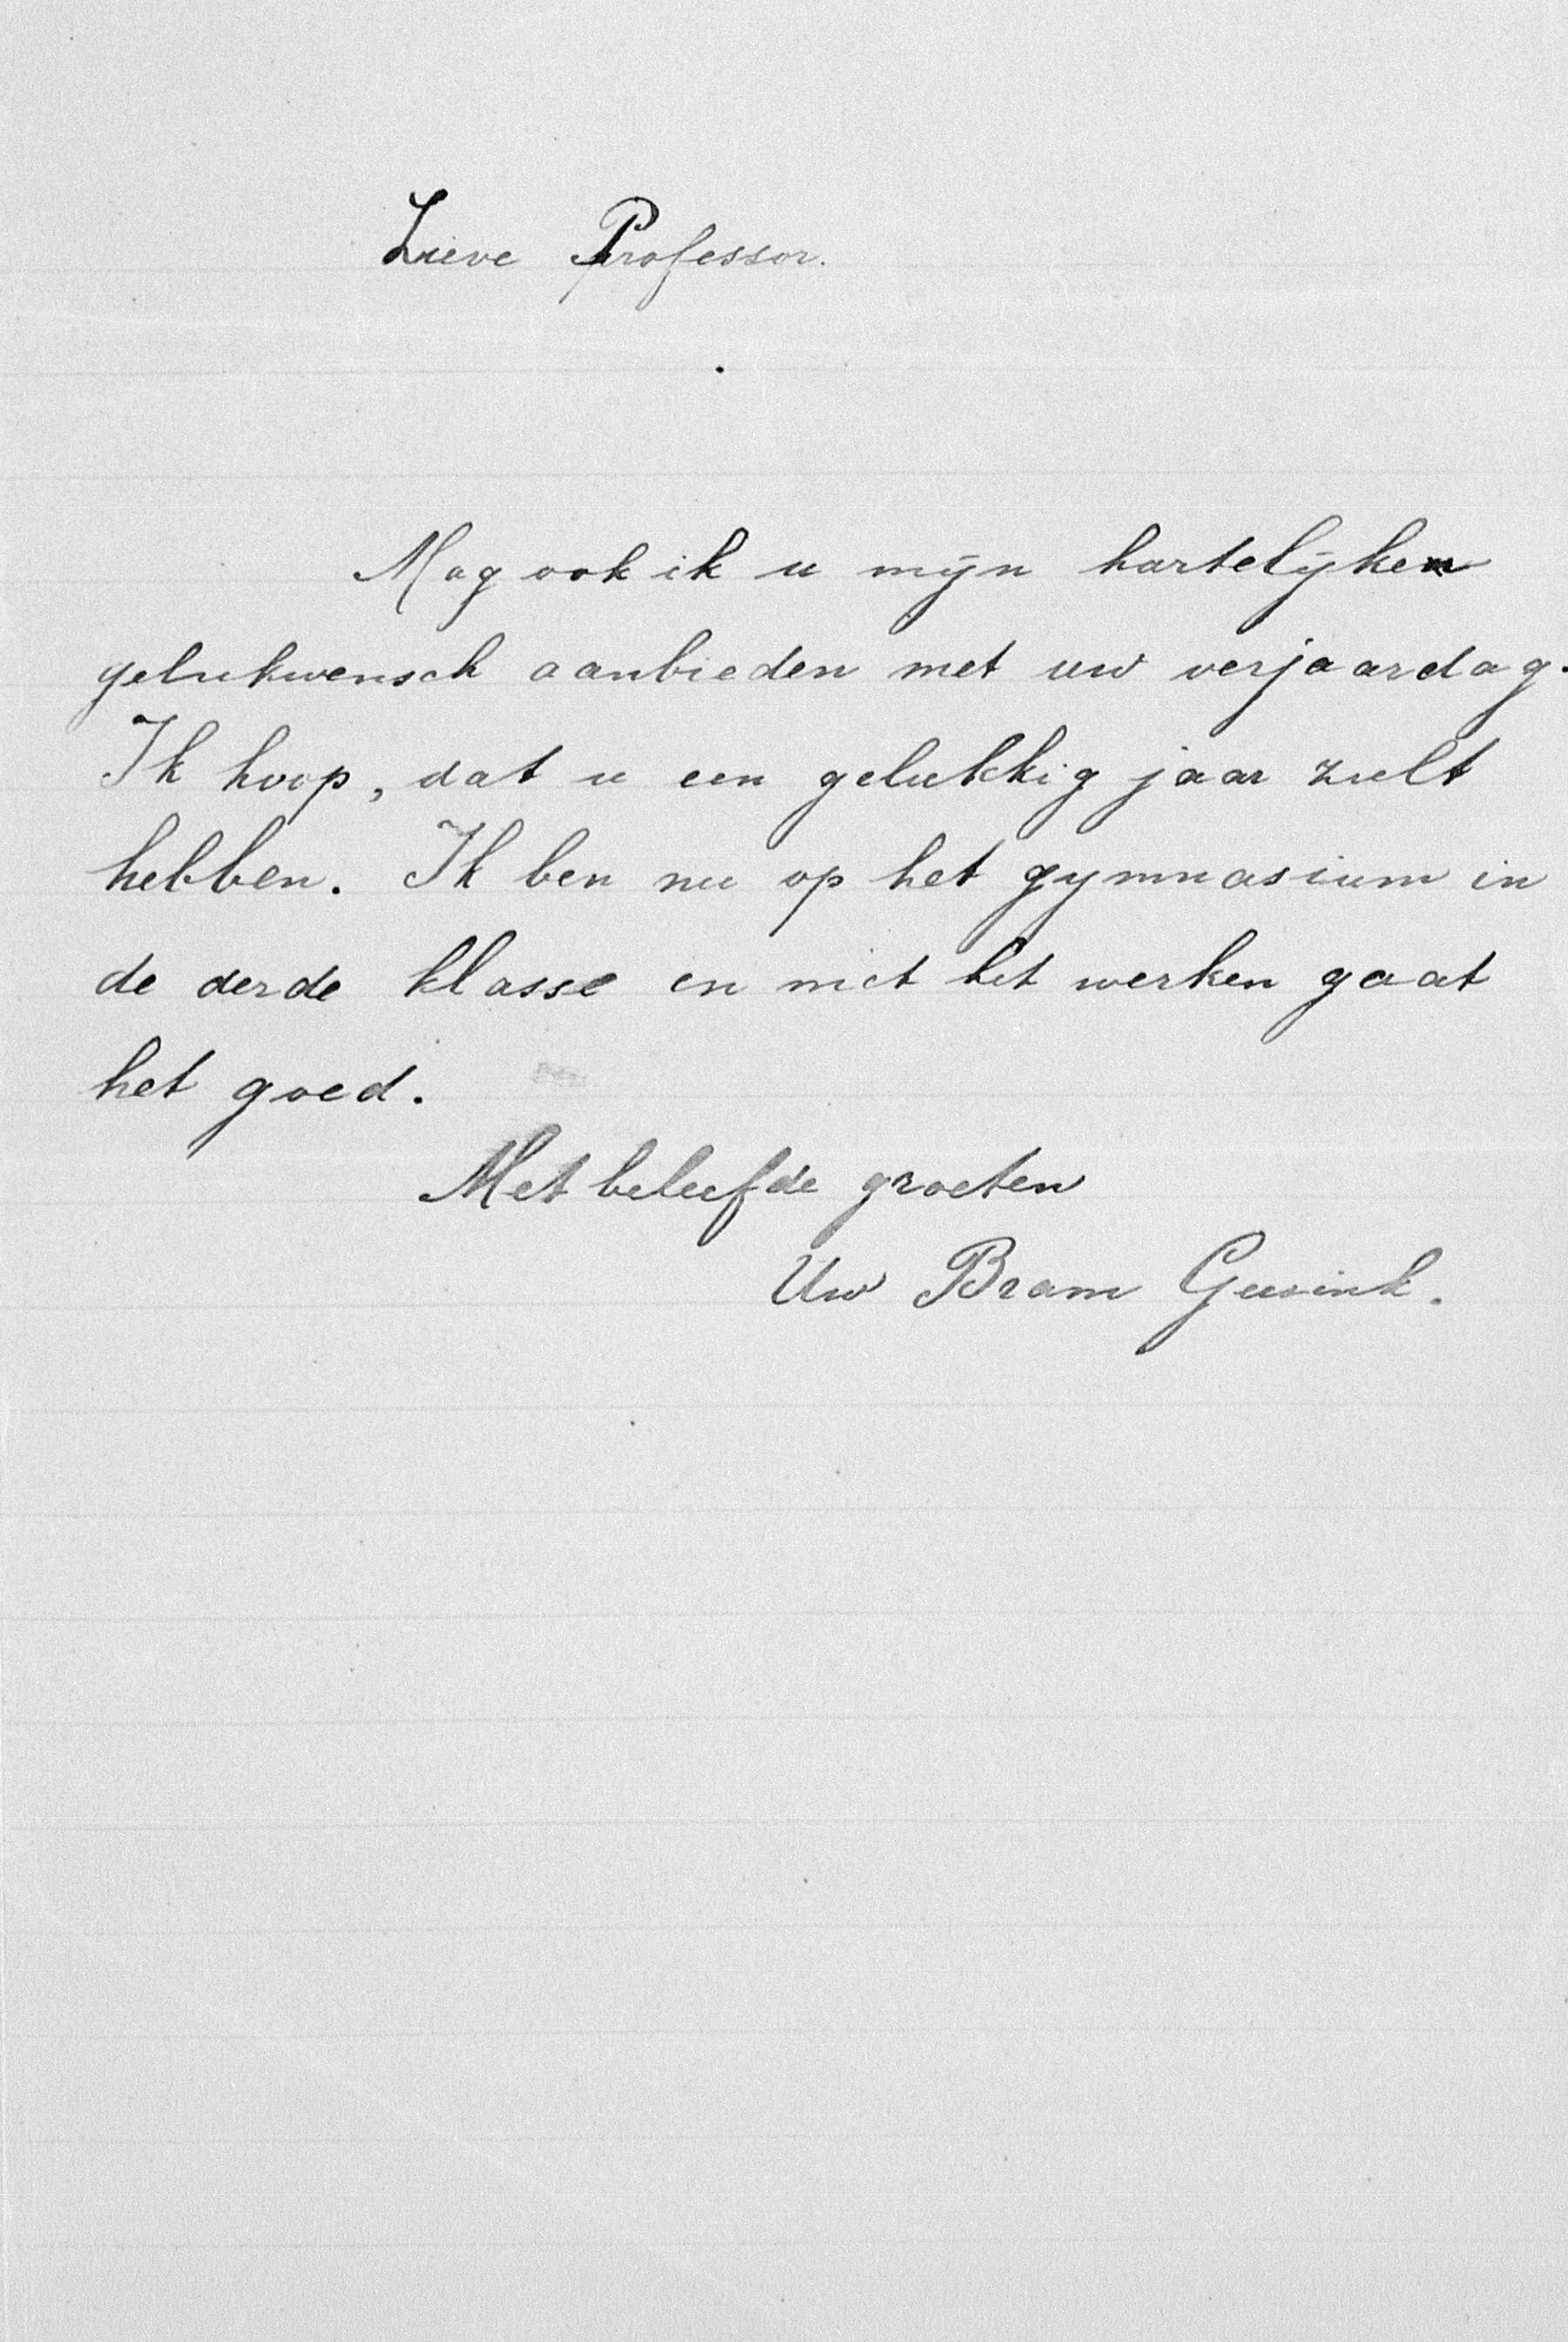 Lieve Professor.
Mag ook ik u mijn hartelijken
gelukwensch aanbieden met uw verjaardag.
Ik hoop, dat u een gelukkig jaar zult
hebben. Ik ben nu op het gymnasium in
de derde klasse en met het werken gaat
het goed.
Met beleefde groeten
Uw Bram Geesink.